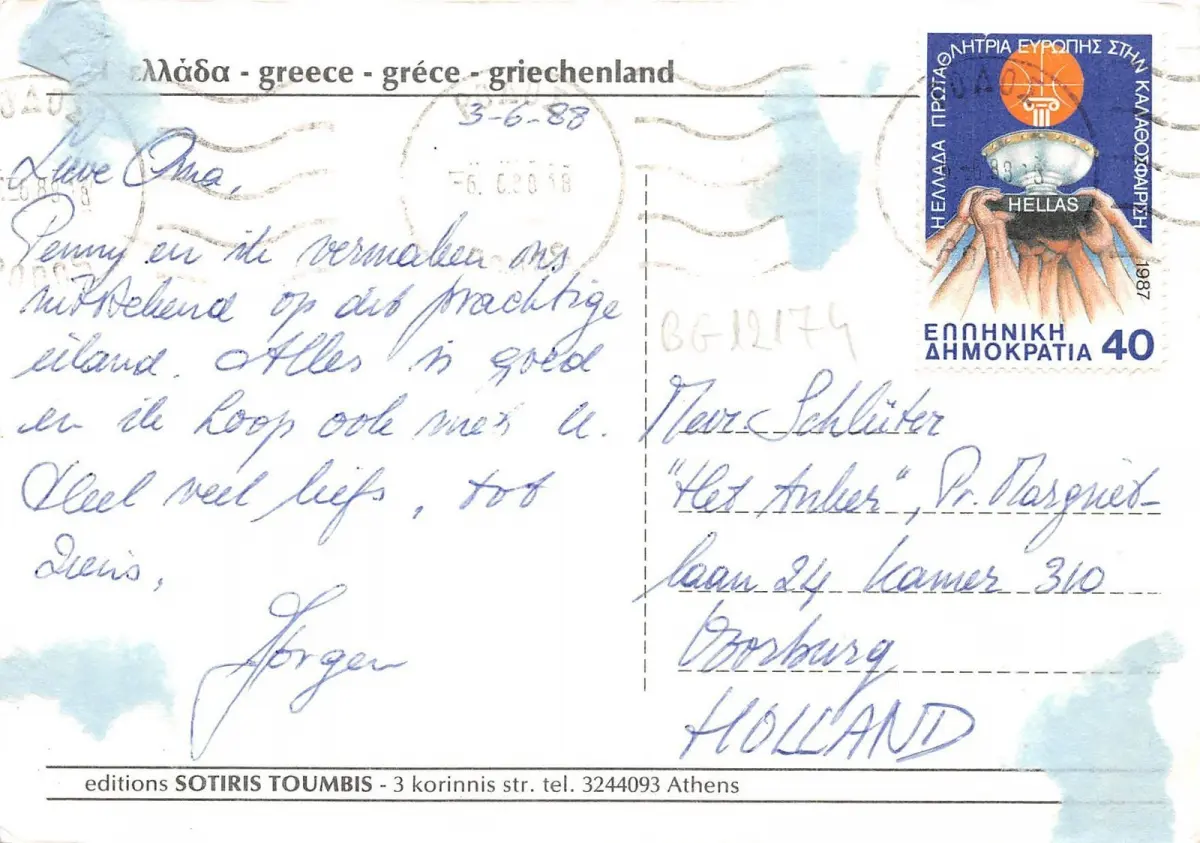 ελλάδα - greece - gréce - griechenland
3-6-88
Lieve Oma,
Penny en ik vermaken ons
uitstekend op dit prachtige
eiland. Alles is goed
en ik hoop ook met u.
Heel veel liefs, tot
ziens,
Jorgen
Η ΕΛΛΑΔΑ ΠΡΩΤΑΘΛΗΤΡΙΑ ΕΥΡΩΠΗΣ ΣΤΗΝ ΚΑΛΑΘΟΣΦΑΙΡΙΣΗ
HELLAS
1987
ΕΛΛΗΝΙΚΗ
ΔΗΜΟΚΡΑΤΙΑ 40
BG12174
Mevr. Schlüter
"Het Anker", Pr. Margriet-
laan 24 kamer 310
Voorburg
HOLLAND
editions SOTIRIS TOUMBIS - 3 korinnis str. tel. 3244093 Athens